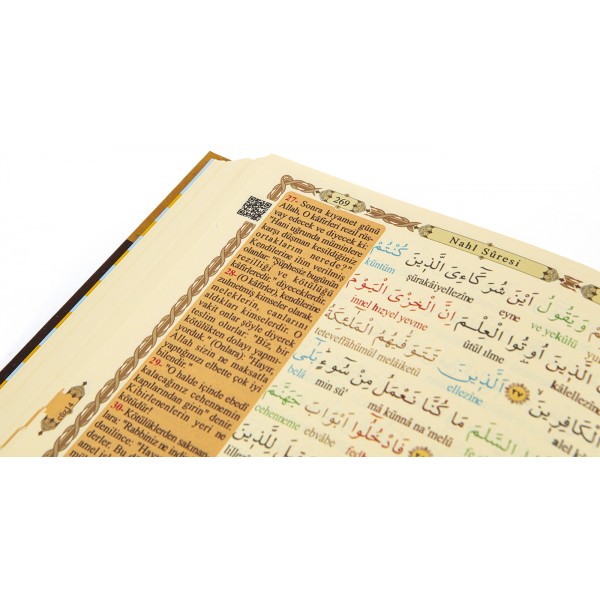 269
Nahl Sûresi
27- Sonra kıyamet günü
Allah, O kâfirleri rezil rüs-
vay edecek ve diyecek ki:
"Hani uğrunda müminlere
karşı düşman kesildiğiniz
ortaklarım nerede?"
Kendilerine ilim verilmiş
olanlar: "Şüphesiz bugünün
rezilliği ve kötülüğü
kâfirleredir." diyeceklerdir.
28- (O kâfirler), kendilerine
zulmetmiş kimseler olarak
meleklerin canlarını
aldıkları kimselerdir. O
vakit onlar şöyle diyerek
teslim olurlar: "Biz, bir
kötülükten dolayı yapmı-
yorduk." (Onlara): "Hayır,
Allah sizin ne maksatla
yaptığınızı elbette çok iyi
bilendir."
29- "O halde içinde ebedî
kalacağınız cehennemin
kapılarından girin" denir.
Kibirlenenlerin yeri ne
kötüdür!
30- Kötülüklerden sakınan-
lara: "Rabbiniz ne indir-
derler. Bu
amel işle
وَيَقُولُ اَيْنَ شُرَكَٓاءِيَ الَّذ۪ينَ كُنْتُمْ
ve yekûlü eyne şürakâiyellezîne küntüm
اُوتُوا الْعِلْمَ اِنَّ الْخِزْيَ الْيَوْمَ
ûtül ılme innel hızyel yevme
الْكَافِر۪ينَ ٢٧ اَلَّذ۪ينَ تَتَوَفّٰيهُمُ الْمَلٰٓئِكَةُ
kâfirîne ellezîne teteveffâhümül melâiketü
السَّلَمَ مَا كُنَّا نَعْمَلُ مِنْ سُٓوءٍ بَلٰٓى
mâ künnâ na'melü min sû' belâ
فَادْخُلُٓوا اَبْوَابَ جَهَنَّمَ
ebvâbe cehenneme
لِلَّذ۪ينَ